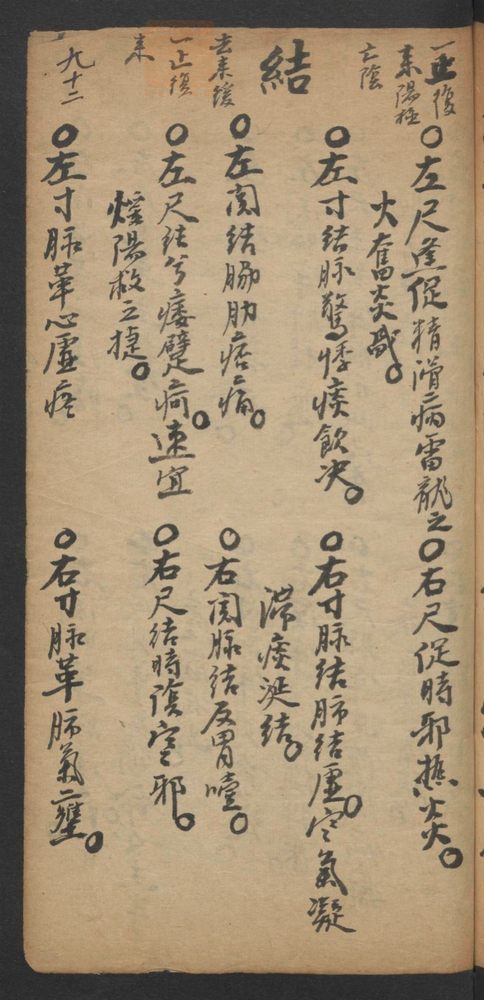 一止復
來陽極
亡陰
結
去來緩
一止復
來
九十二
○左尺脉促精滑病雷龍之
火奮炎哉○
○右尺促時邪熱炎○
○左寸結脉驚悸痰飲决○
○右寸脉結肺結壅○寒氣凝
滯痰涎結○
○左関結脇肋痞痛○
○右関脉結反胃噎○
○左尺結兮痿躄痾○速宜
煖陽救之捷○
○右尺結時陰寒邪○
○左寸脉革心虛疼
○右寸脉革肺氣壅○